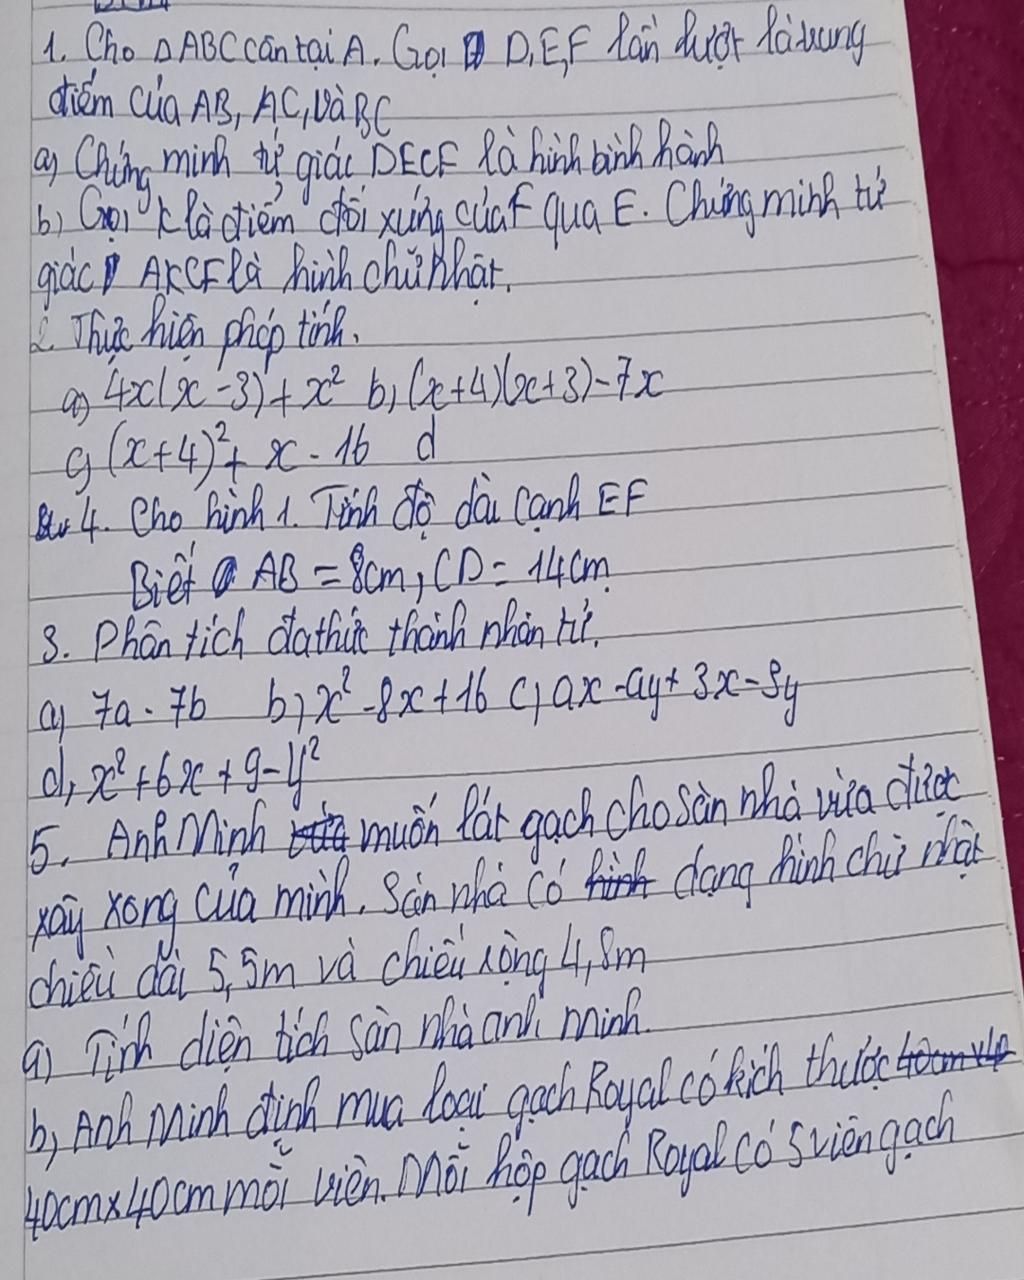 1. Cho △ABC cân tại A. Gọi D, E, F lần lượt là trung
điểm của AB, AC, và BC
a) Chứng minh tứ giác DECF là hình bình hành
b) Gọi K là điểm đối xứng của F qua E. Chứng minh tứ
giác AKCF là hình chữ nhật.
2. Thực hiện phép tính.
a) 4x(x-3)+x² b, (x+4)(x+3)-7x
c) (x+4)²+ x - 16 d
4. Cho hình 1. Tính độ dài cạnh EF
Biết AB = 8cm, CD = 14cm
3. Phân tích đa thức thành nhân tử.
a) 7a - 7b b) x² -8x+16 c) ax -ay+ 3x-3y
d, x² +6x +9-y²
5. Anh Minh muốn lát gạch cho sàn nhà vừa được
xây xong của mình. Sàn nhà có dạng hình chữ nhật
chiều dài 5,5m và chiều rộng 4,8m
a) Tính diện tích sàn nhà anh minh.
b, Anh Minh định mua loại gạch Royal có kích thước
40cm×40cm mỗi viên. Mỗi hộp gạch Royal có 5 viên gạch